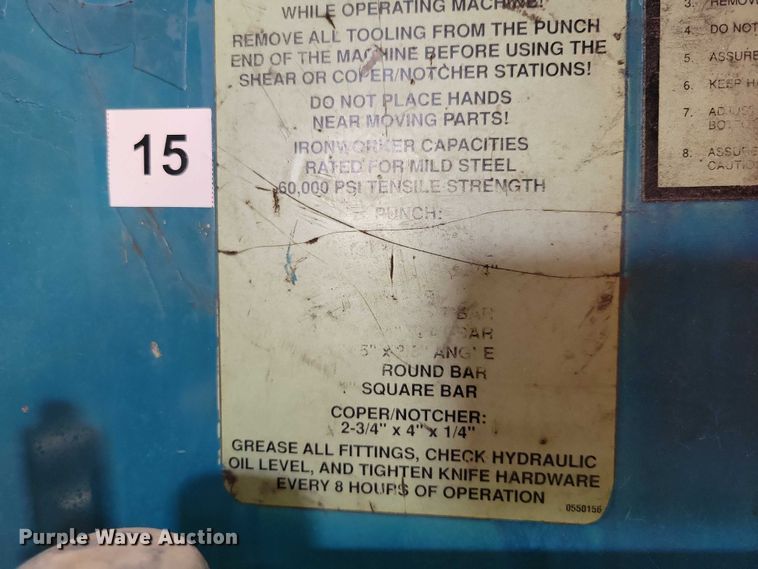 WHILE OPERATING MACHINE!
REMOVE ALL TOOLING FROM THE PUNCH
END OF THE MACHINE BEFORE USING THE
SHEAR OR COPER/NOTCHER STATIONS!
DO NOT PLACE HANDS
NEAR MOVING PARTS!
IRONWORKER CAPACITIES
RATED FOR MILD STEEL
60,000 PSI TENSILE STRENGTH
PUNCH:
BAR
BAR
ANGLE
ROUND BAR
SQUARE BAR
COPER/NOTCHER:
2-3/4" x 4" x 1/4"
GREASE ALL FITTINGS, CHECK HYDRAULIC
OIL LEVEL, AND TIGHTEN KNIFE HARDWARE
EVERY 8 HOURS OF OPERATION
0550156
15
3.
4. DO NOT
5. ASSURE
6. KEEP
7.
8. ASSURE
Purple Wave Auction